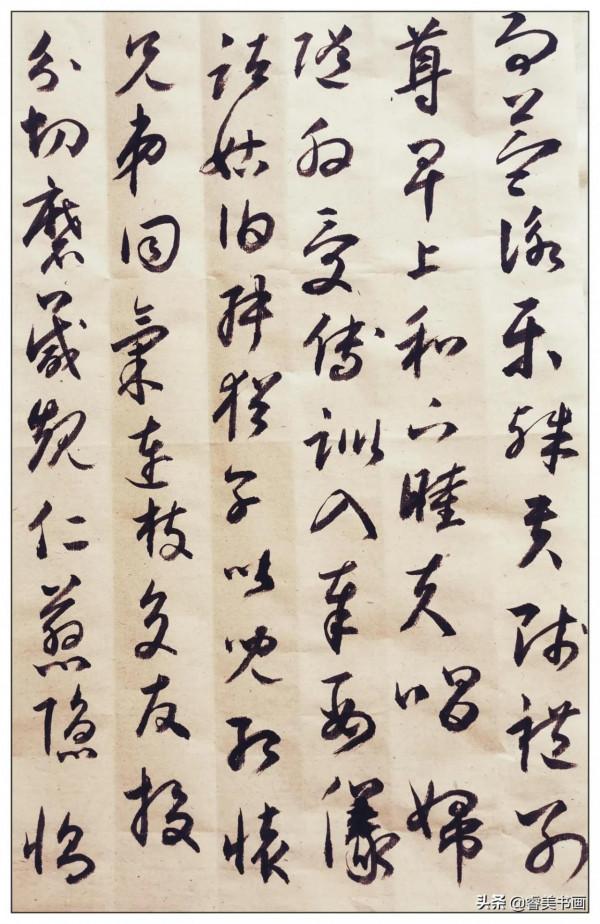 而益詠樂殊貴賤禮別
尊卑上和下睦夫唱婦
隨外受傅訓入奉母儀
諸姑伯叔猶子比兒孔懷
兄弟同氣連枝交友投
分切磨箴規仁慈隱惻
头条 @睿美书画